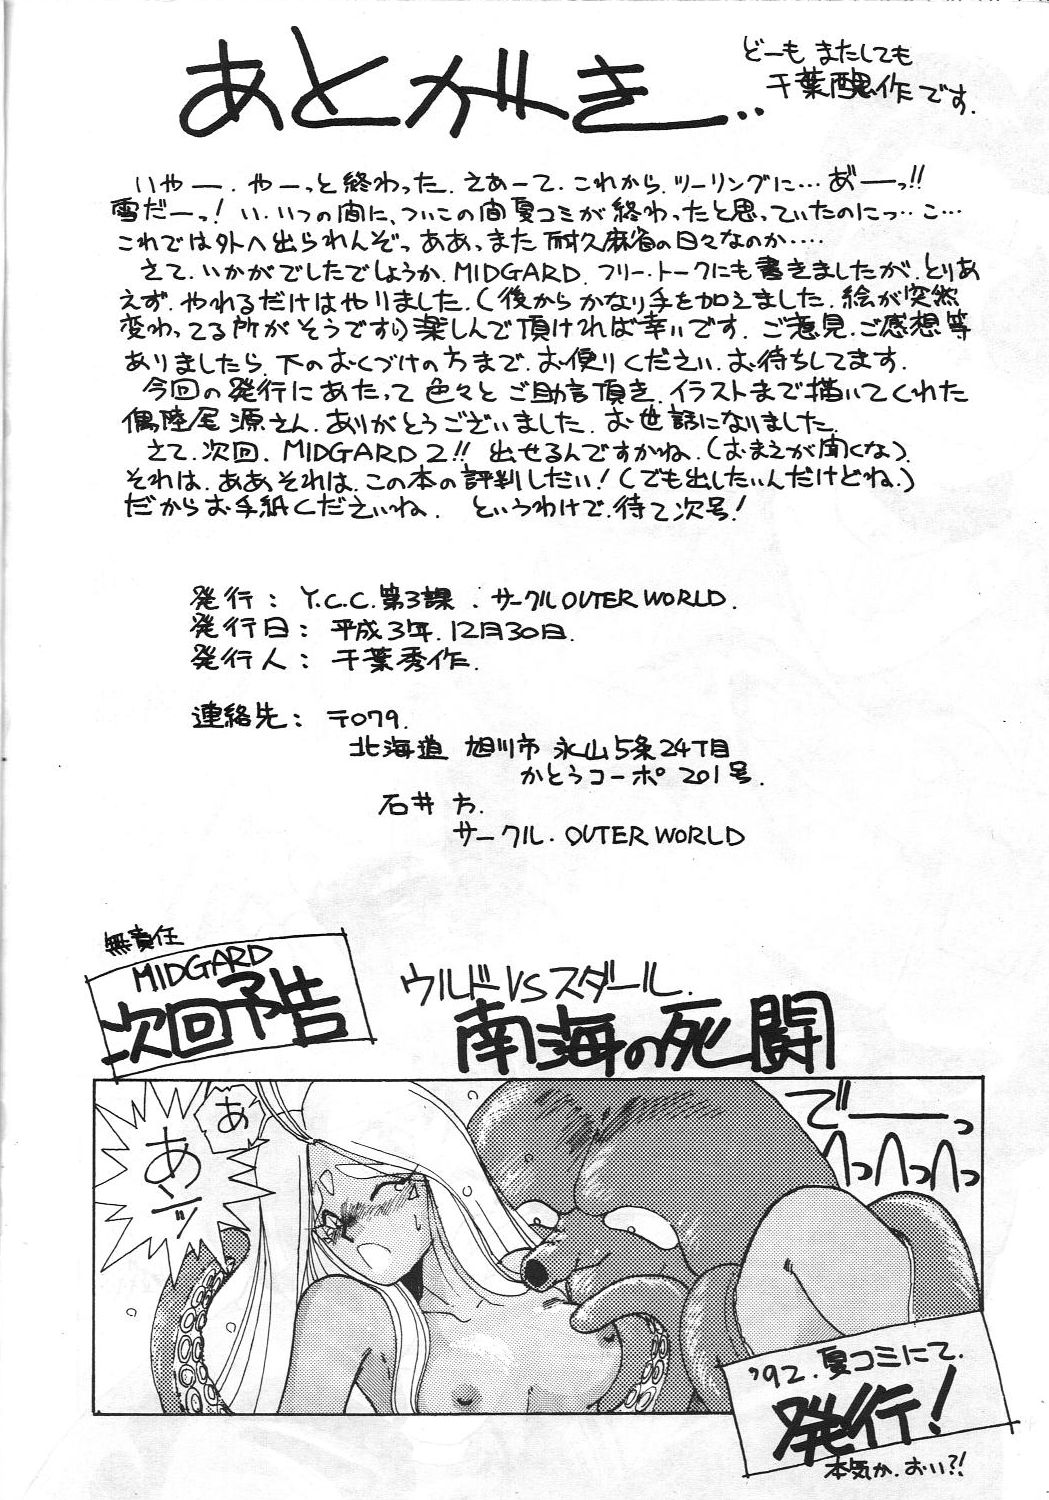 あとがき..
どーも またしても
千葉醜作です.
いやー. やーっと終わった. さあーて. これから. ツーリングに… あ゛ーっ!!
雪だーっ! い、いつの間に、ついこの間夏コミが終わったと思っていたのにっ‥ こ…
これでは外へ出られんぞっ ああ、また耐久麻雀の日々なのか‥‥
さて. いかがでしたでしょうか. MIDGARD. フリー・トークにも書きましたが. とりあ
えず. やれるだけはやりました. (後からかなり手を加えました. 絵が突然
変わってる所がそうです;) 楽しんで頂ければ幸いです. ご意見. ご感想等
ありましたら. 下のおくづけの方まで. お便りください. お待ちしてます.
今回の発行にあたって色々とご助言頂き. イラストまで描いてくれた
偶陸尾 源さん. ありがとうございました. お世話になりました.
さて. 次回. MIDGARD 2!! 出せるんですかね. (おまえが聞くな).
それは. ああそれは. この本の評判しだい! (でも出したいんだけどね.)
だからお手紙くださいね. というわけで. 待て次号!
発行: Y.C.C.第3課. サークル OUTER WORLD.
発行日: 平成3年. 12月30日.
発行人: 千葉秀作.
連絡先: 〒079.
北海道 旭川市 永山5条24丁目
かとうコーポ 201号.
石井 方.
サークル. OUTER WORLD
無責任
MIDGARD
次回予告
ウルド VS スダール.
南海の死闘
あ
あン゛
でーっ
へっへっへっ
'92. 夏コミにて.
発行!
本気か. おい?!